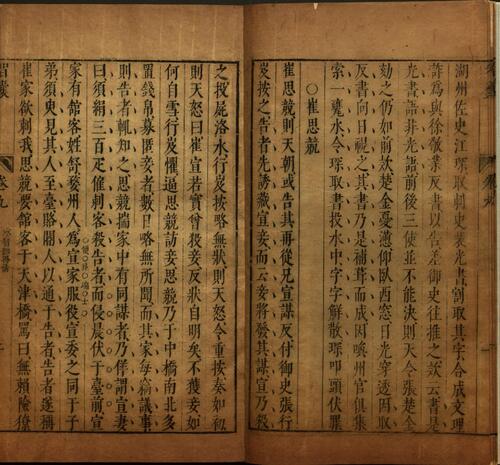 湖州佐史江琛取刺史裴光書割取其字合成文理
詐爲與徐敬業反書以告差御史往推之款云書是
光書語非光語前後三使並不能決則天令張楚金
劾之仍如前款楚金憂懑仰臥西窓日光穿透因取
反書向日視之其書乃是補葺而成因喚州官俱集
索一甕水令琛取書投水中字字解散琛叩頭伏罪
○崔思兢
崔思兢則天朝或告其再從兄宣謀反付御史張行
岌按之告者先誘藏宣妾而云妾將發其謀宣乃殺
之投屍洛水行岌按略無狀則天怒令重按奏如初
則天怒曰崔宣若實曾殺妾反狀自明矣不獲妾如
何自雪行岌懼逼思兢訪妾思兢乃于中橋南北多
置錢帛募匿妾者數日略無所聞而其家每竊議事
則告者輒知之思兢揣家中有同謀者乃佯謂宣妻
曰須絹三百疋僱刺客殺告者而侵晨伏于臺前宣
家有館客姓舒婺州人爲宣家服役宣委之同于子
弟須臾見其人至臺賂閽人以通于告者告者遂稱
崔家欲刺我思兢要館客于天津橋罵曰無賴險獠
智囊
卷九